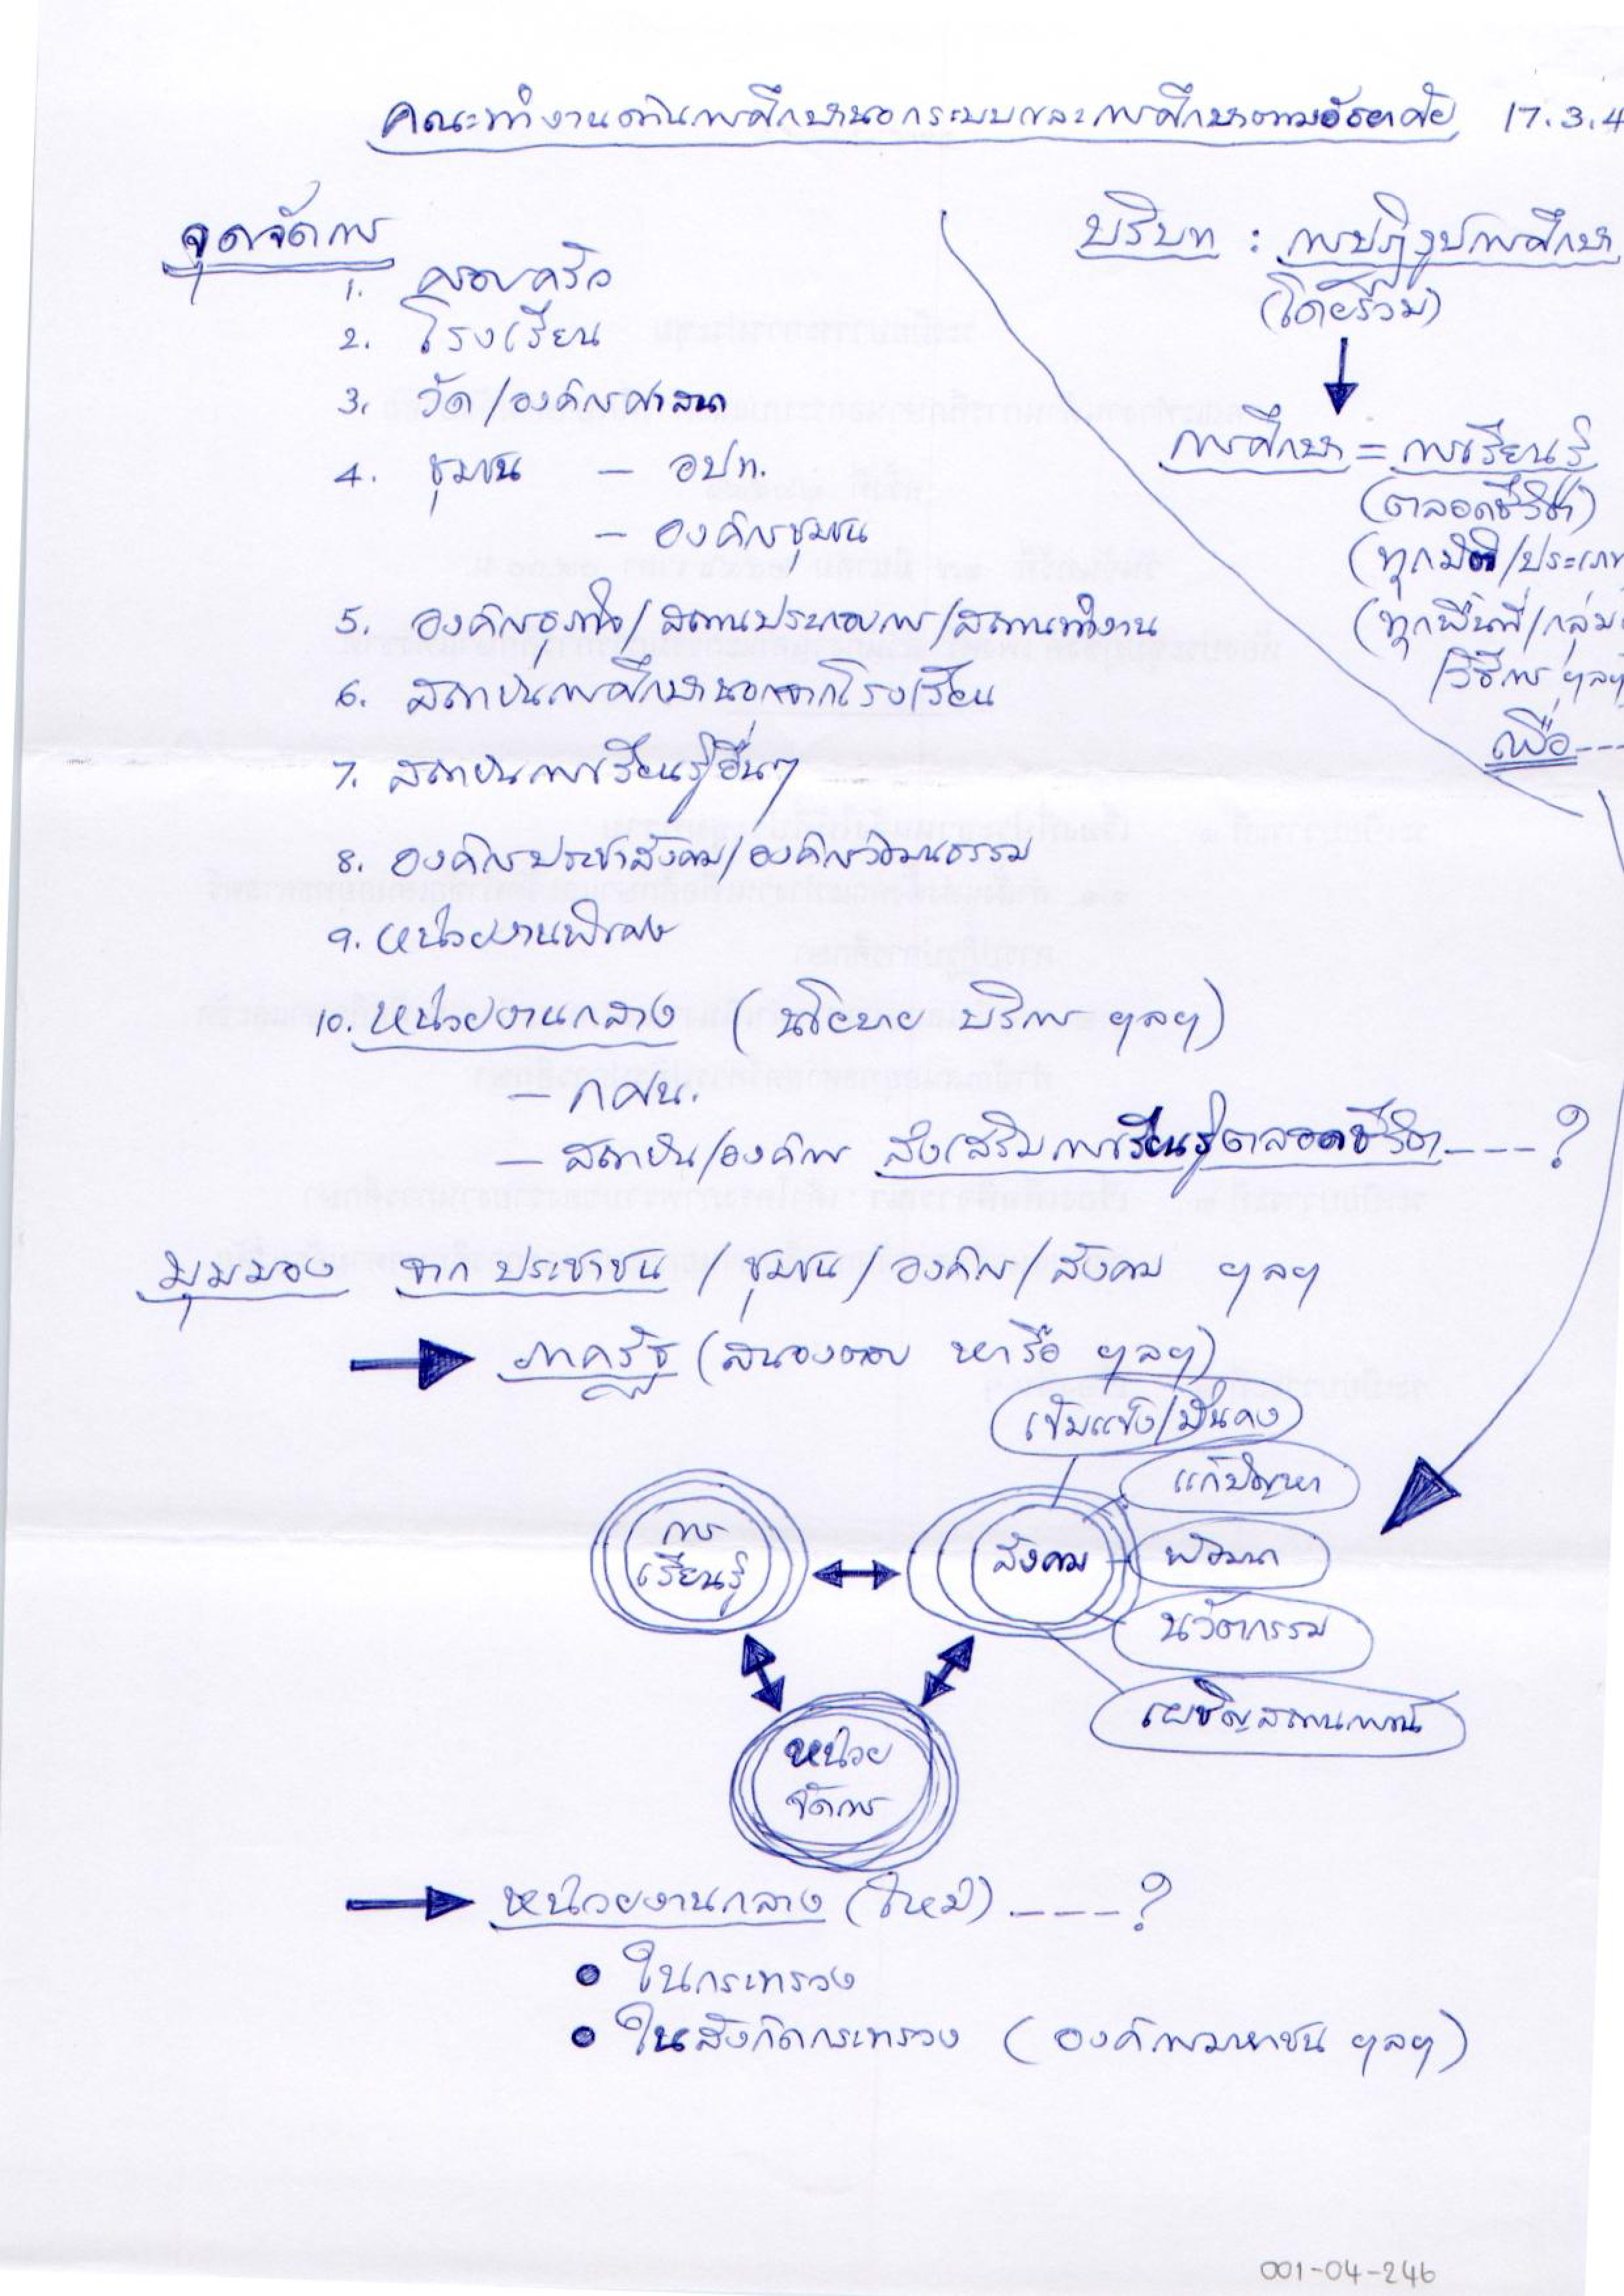 คณะทำงานด้านการศึกษานอกระบบและการศึกษาตามอัธยาศัย 17.3.4
จุดจัดการ
1. ครอบครัว
2. โรงเรียน
3. วัด/องค์กรศาสนา
4. ชุมชน – อปท.
– องค์กรชุมชน
5. องค์กรธุรกิจ/สถานประกอบการ/สถานทำงาน
6. สถาบันการศึกษานอกจากโรงเรียน
7. สถาบันการเรียนรู้อื่นๆ
8. องค์กรประชาสังคม/องค์กรวัฒนธรรม
9. หน่วยงานพิเศษ
10. หน่วยงานกลาง (นโยบาย บริการ ฯลฯ)
– กศน.
– สถาบัน/องค์การ ส่งเสริมการเรียนรู้ตลอดชีวิต ----?
บริบท : การปฏิรูปการศึกษา
(โดยรวม)
การศึกษา = การเรียนรู้
(ตลอดชีวิต)
(ทุกมิติ/ประเภท
(ทุกพื้นที่/กลุ่ม
/วิธีการ ฯลฯ
เพื่อ---
มุมมอง จาก ประชาชน / ชุมชน / องค์กร / สังคม ฯลฯ
ภาครัฐ (สนองตอบ หารือ ฯลฯ)
เข้มแข็ง/มั่นคง
แก้ปัญหา
การ
เรียนรู้
สังคม
พัฒนา
นวัตกรรม
เผชิญสถานการณ์
หน่วย
จัดการ
หน่วยงานกลาง (ใหม่) ----?
• ในกระทรวง
• ในสังกัดกระทรวง (องค์การมหาชน ฯลฯ)
001-04-246